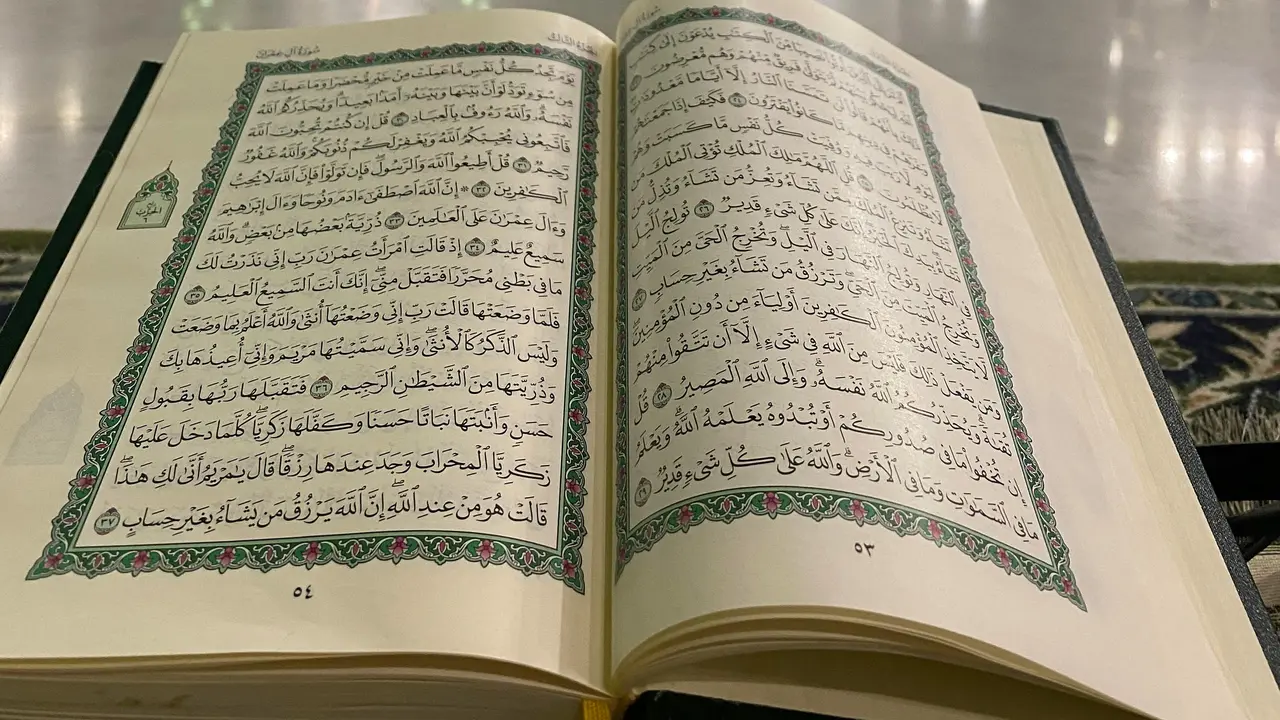 أَلَمْ تَرَ إِلَى ٱلَّذِينَ أُوتُوا۟ نَصِيبًا مِّنَ ٱلْكِتَٰبِ يُدْعَوْنَ إِلَىٰ كِتَٰبِ
ٱللَّهِ لِيَحْكُمَ بَيْنَهُمْ ثُمَّ يَتَوَلَّىٰ فَرِيقٌ مِّنْهُمْ وَهُم مُّعْرِضُونَ ٢٣
ذَٰلِكَ بِأَنَّهُمْ قَالُوا۟ لَن تَمَسَّنَا ٱلنَّارُ إِلَّآ أَيَّامًا مَّعْدُودَٰتٍ
وَغَرَّهُمْ فِى دِينِهِم مَّا كَانُوا۟ يَفْتَرُونَ ٢٤ فَكَيْفَ إِذَا جَمَعْنَٰهُمْ
لِيَوْمٍ لَّا رَيْبَ فِيهِ وَوُفِّيَتْ كُلُّ نَفْسٍ مَّا كَسَبَتْ وَهُمْ
لَا يُظْلَمُونَ ٢٥ قُلِ ٱللَّهُمَّ مَٰلِكَ ٱلْمُلْكِ تُؤْتِى ٱلْمُلْكَ مَن
تَشَآءُ وَتَنزِعُ ٱلْمُلْكَ مِمَّن تَشَآءُ وَتُعِزُّ مَن تَشَآءُ وَتُذِلُّ مَن
تَشَآءُ بِيَدِكَ ٱلْخَيْرُ إِنَّكَ عَلَىٰ كُلِّ شَىْءٍ قَدِيرٌ ٢٦ تُولِجُ ٱلَّيْلَ
فِى ٱلنَّهَارِ وَتُولِجُ ٱلنَّهَارَ فِى ٱلَّيْلِ وَتُخْرِجُ ٱلْحَىَّ مِنَ ٱلْمَيِّتِ
وَتُخْرِجُ ٱلْمَيِّتَ مِنَ ٱلْحَىِّ وَتَرْزُقُ مَن تَشَآءُ بِغَيْرِ حِسَابٍ ٢٧
لَّا يَتَّخِذِ ٱلْمُؤْمِنُونَ ٱلْكَٰفِرِينَ أَوْلِيَآءَ مِن دُونِ ٱلْمُؤْمِنِينَ
وَمَن يَفْعَلْ ذَٰلِكَ فَلَيْسَ مِنَ ٱللَّهِ فِى شَىْءٍ إِلَّآ أَن تَتَّقُوا۟ مِنْهُمْ
تُقَىٰةً وَيُحَذِّرُكُمُ ٱللَّهُ نَفْسَهُۥ وَإِلَى ٱللَّهِ ٱلْمَصِيرُ ٢٨ قُلْ
إِن تُخْفُوا۟ مَا فِى صُدُورِكُمْ أَوْ تُبْدُوهُ يَعْلَمْهُ ٱللَّهُ وَيَعْلَمُ
مَا فِى ٱلسَّمَٰوَٰتِ وَمَا فِى ٱلْأَرْضِ وَٱللَّهُ عَلَىٰ كُلِّ شَىْءٍ قَدِيرٌ ٢٩
٥٣
الجزء الثالث
سورة آل عمران
يَوْمَ تَجِدُ كُلُّ نَفْسٍ مَّا عَمِلَتْ مِنْ خَيْرٍ مُّحْضَرًا وَمَا عَمِلَتْ
مِن سُوٓءٍ تَوَدُّ لَوْ أَنَّ بَيْنَهَا وَبَيْنَهُۥٓ أَمَدًۢا بَعِيدًا وَيُحَذِّرُكُمُ ٱللَّهُ
نَفْسَهُۥ وَٱللَّهُ رَءُوفٌۢ بِٱلْعِبَادِ ٣٠ قُلْ إِن كُنتُمْ تُحِبُّونَ ٱللَّهَ
فَٱتَّبِعُونِى يُحْبِبْكُمُ ٱللَّهُ وَيَغْفِرْ لَكُمْ ذُنُوبَكُمْ وَٱللَّهُ غَفُورٌ
رَّحِيمٌ ٣١ قُلْ أَطِيعُوا۟ ٱللَّهَ وَٱلرَّسُولَ فَإِن تَوَلَّوْا۟ فَإِنَّ ٱللَّهَ لَا يُحِبُّ
ٱلْكَٰفِرِينَ ٣٢ ۞ إِنَّ ٱللَّهَ ٱصْطَفَىٰٓ ءَادَمَ وَنُوحًا وَءَالَ إِبْرَٰهِيمَ
وَءَالَ عِمْرَٰنَ عَلَى ٱلْعَٰلَمِينَ ٣٣ ذُرِّيَّةًۢ بَعْضُهَا مِنۢ بَعْضٍ وَٱللَّهُ
سَمِيعٌ عَلِيمٌ ٣٤ إِذْ قَالَتِ ٱمْرَأَتُ عِمْرَٰنَ رَبِّ إِنِّى نَذَرْتُ لَكَ
مَا فِى بَطْنِى مُحَرَّرًا فَتَقَبَّلْ مِنِّىٓ إِنَّكَ أَنتَ ٱلسَّمِيعُ ٱلْعَلِيمُ ٣٥
فَلَمَّا وَضَعَتْهَا قَالَتْ رَبِّ إِنِّى وَضَعْتُهَآ أُنثَىٰ وَٱللَّهُ أَعْلَمُ بِمَا وَضَعَتْ
وَلَيْسَ ٱلذَّكَرُ كَٱلْأُنثَىٰ وَإِنِّى سَمَّيْتُهَا مَرْيَمَ وَإِنِّىٓ أُعِيذُهَا بِكَ
وَذُرِّيَّتَهَا مِنَ ٱلشَّيْطَٰنِ ٱلرَّجِيمِ ٣٦ فَتَقَبَّلَهَا رَبُّهَا بِقَبُولٍ
حَسَنٍ وَأَنۢبَتَهَا نَبَاتًا حَسَنًا وَكَفَّلَهَا زَكَرِيَّا كُلَّمَا دَخَلَ عَلَيْهَا
زَكَرِيَّا ٱلْمِحْرَابَ وَجَدَ عِندَهَا رِزْقًا قَالَ يَٰمَرْيَمُ أَنَّىٰ لَكِ هَٰذَا
قَالَتْ هُوَ مِنْ عِندِ ٱللَّهِ إِنَّ ٱللَّهَ يَرْزُقُ مَن يَشَآءُ بِغَيْرِ حِسَابٍ ٣٧
٥٤